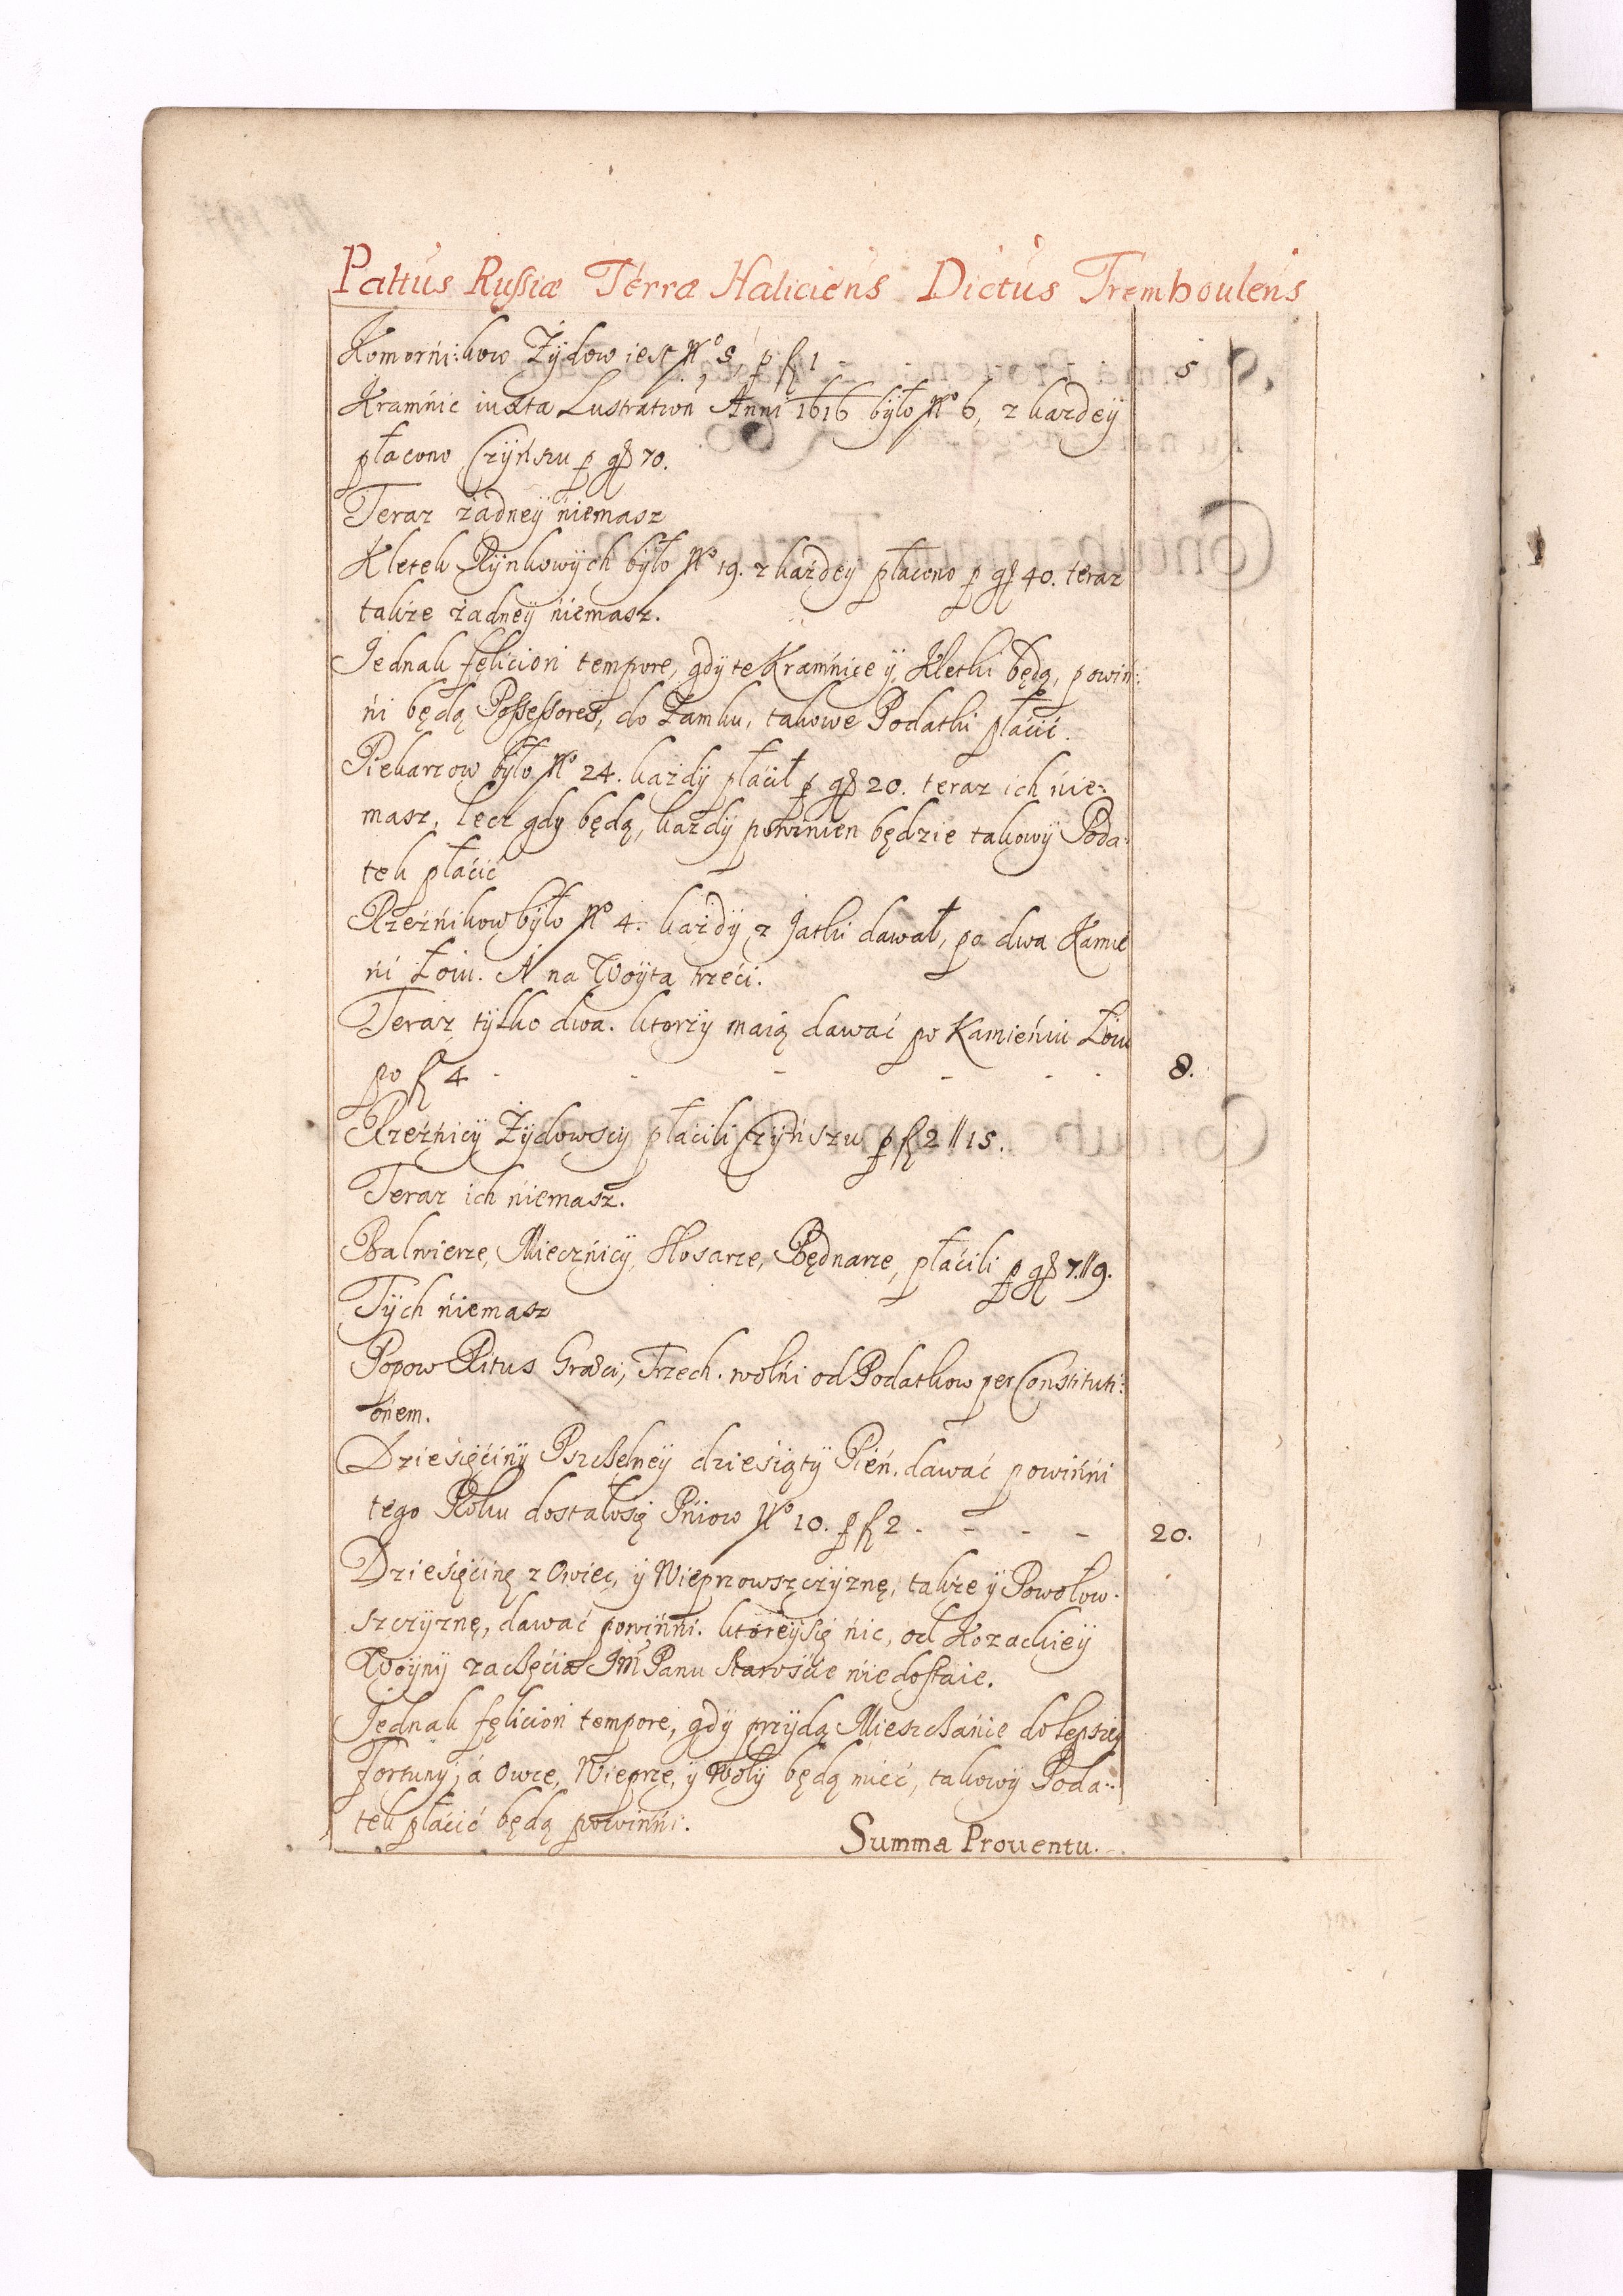 Pałtus Russiæ Terræ Haliciens Dictus Tremboulens
Komorni:kow Żydow iest No 5, p fl 1 - 5
Kramnic iuxta Lustration Anni 1616 było No 6, z kazdey
płacono Czynszu p gr 70.
Teraz żadney niemasz
Kletek Rynkowych było No 19. z każdey płacono p gr 40. teraz
takze żadney niemasz.
Jednak feliciori tempore, gdy te Kramnice y Kletki będą, powin:
ni będą Possessores, do Zamku, takowe Podatki płacić.
Piekarzow było No 24. każdy płacił p gr 20. teraz ich nie:
masz, lecz gdy będą, każdy powinien będzie takowy Poda:
tek płacić
Rzeźnikow było No 4. każdy z Jatki dawał, po dwa Kamie
ni Łoiu. A na Woyta trzeci.
Teraz tylko dwa. ktorzy maią dawać po Kamieniu Łoiu
po fl 4 - - - - - - 8.
Rzeźnicy Żydowscy płacili Czynszu p fl 2 // 15.
Teraz ich niemasz.
Balwierze, Miecznicy, Slosarze, Będnarze, płacili p gr 7.//9.
Tych niemasz
Popow Ritus Græci, Trzech. wolni od Podatkow per Constituti:
onem.
Dziesięciny Pszczelney dziesiąty Pień. dawać powinni
tego Roku dostałosię Pniow No 10. p fl 2 - - - - 20.
Dziesięcinę z Owiec, y Wieprzowszczyznę, takze y Powołow:
szczyznę, dawać powinni. ktoreysię nic, od Kozackiey
Woyny zaczęcia Jm Panu Staroście niedostaie.
Jednak felicion tempore, gdy przydą Mieszczanie do lepszey
Fortuny, á Owce, Wieprze, y Woły będą mieć, takowy Poda:
tek płacić będą powinni.
Summa Prouentu.